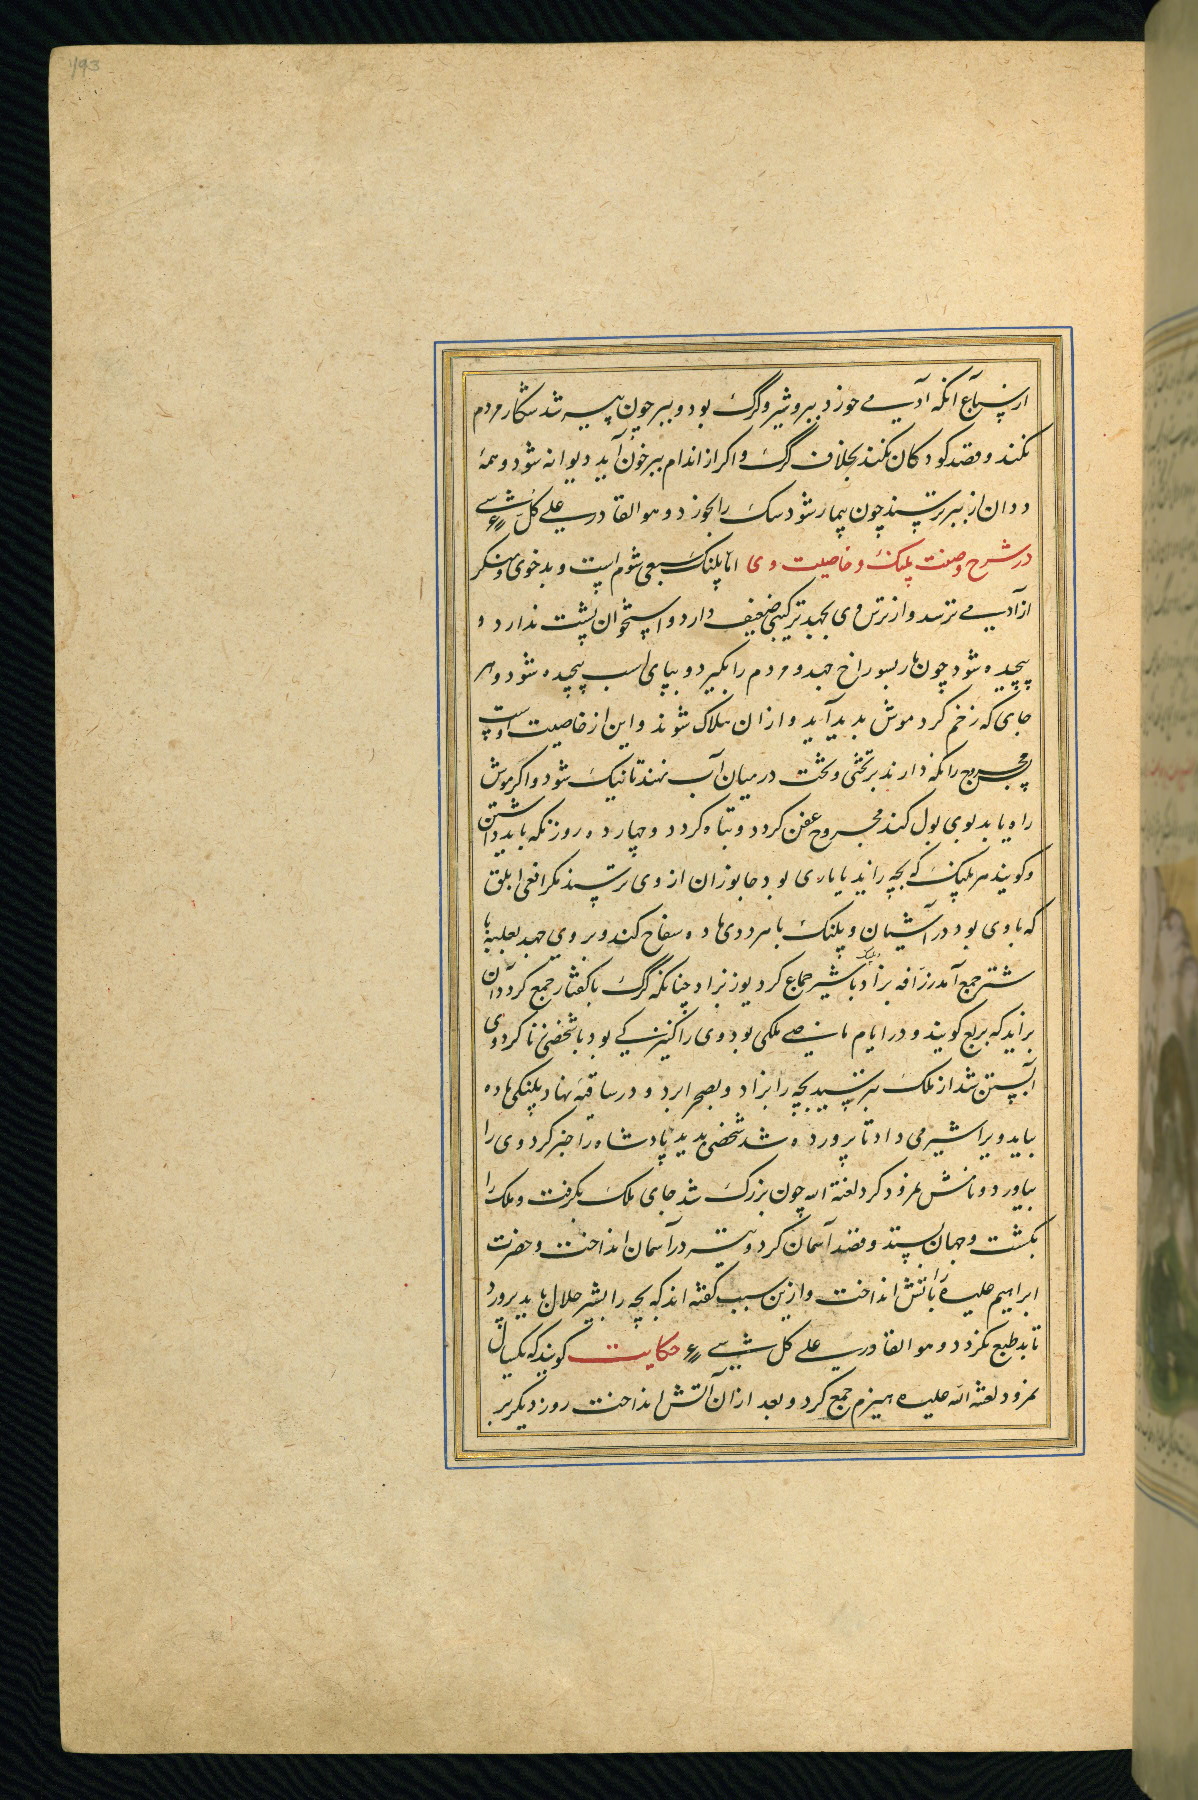 193
از سباع انکه آدمی خورد ببر و شیر و گرگ بود و ببر چون پیر شد شکار مردم
نکند و قصد کودکان نکند بخلاف گرگ و اکر از اندام ببر خون آید دیوانه شود و همهٔ
ددان از ببر ترسند چون بیمار شود سک را بخورد و هو القادر علی کل شیء
در شرح وصفت پلنک و خاصیت وی اما پلنک سبعی شوم است و بدخوی و منکر
از آدمی ترسد و از ترس وی بجهد ترکیبی ضعیف دارد و استخوان پشت ندارد و
پیچیده شود چون مار بسوراخ جهد و مردم را بگیرد و بپای اسب پیچیده شود و هر
جای که زخم کرد موش بدید آید و از ان هلاک شوند و این از خاصیت اوست
پس مجروح را نکه دارند بر تختی و تخت در میان آب نهند تا نیک شود و اکر موش
راه یابد بوی بول کند مجروح عفن کردد و تباه کردد و چهارده روز نکه باید داشتن
و کویند هر پلنک که بچه زاید با ماری بود جانوران از وی ترسند مکر افعی ابلق
که با وی بود در آشیان و پلنک با هر ددی ماده سفاح کند و بر وی جهد بغلبه با
شتر جمع آمد زرافه بزاد با شیر جماع کرد یوز بزاد چنانکه گرگ با کفتار جمع کردد آن
براید که بربع کویند و در ایام ماضی ملکی بود وی را کنیزکی بود با شخصی زنا کرد وی
آبستن شد از ملک بترسید بچه را بزاد و بصحرا برد و در ساقیه نهاد پلنکی ماده
بیاید ویرا شیر می داد تا پرورده شد شخصی بدید پادشاه را خبر کرد وی را
بیاورد و نامش نمرود کرد لعنة الله چون بزرک شد جای ملک بکرفت و ملک را
بکشت و جهان بستد و قصد آسمان کرد و تیر در آسمان انداخت و حضرت
ابراهیم علیه را باتش انداخت و ازین سبب کفته اند که بچه را بشیر حلال باید پرورد
تا بدطبع نکردد و هو القادر علی کل شیء حکایت کویند که یکسال
نمرود لعنه الله علیه هیزم جمع کرد و بعد از ان آتش انداخت روز دیکر بر